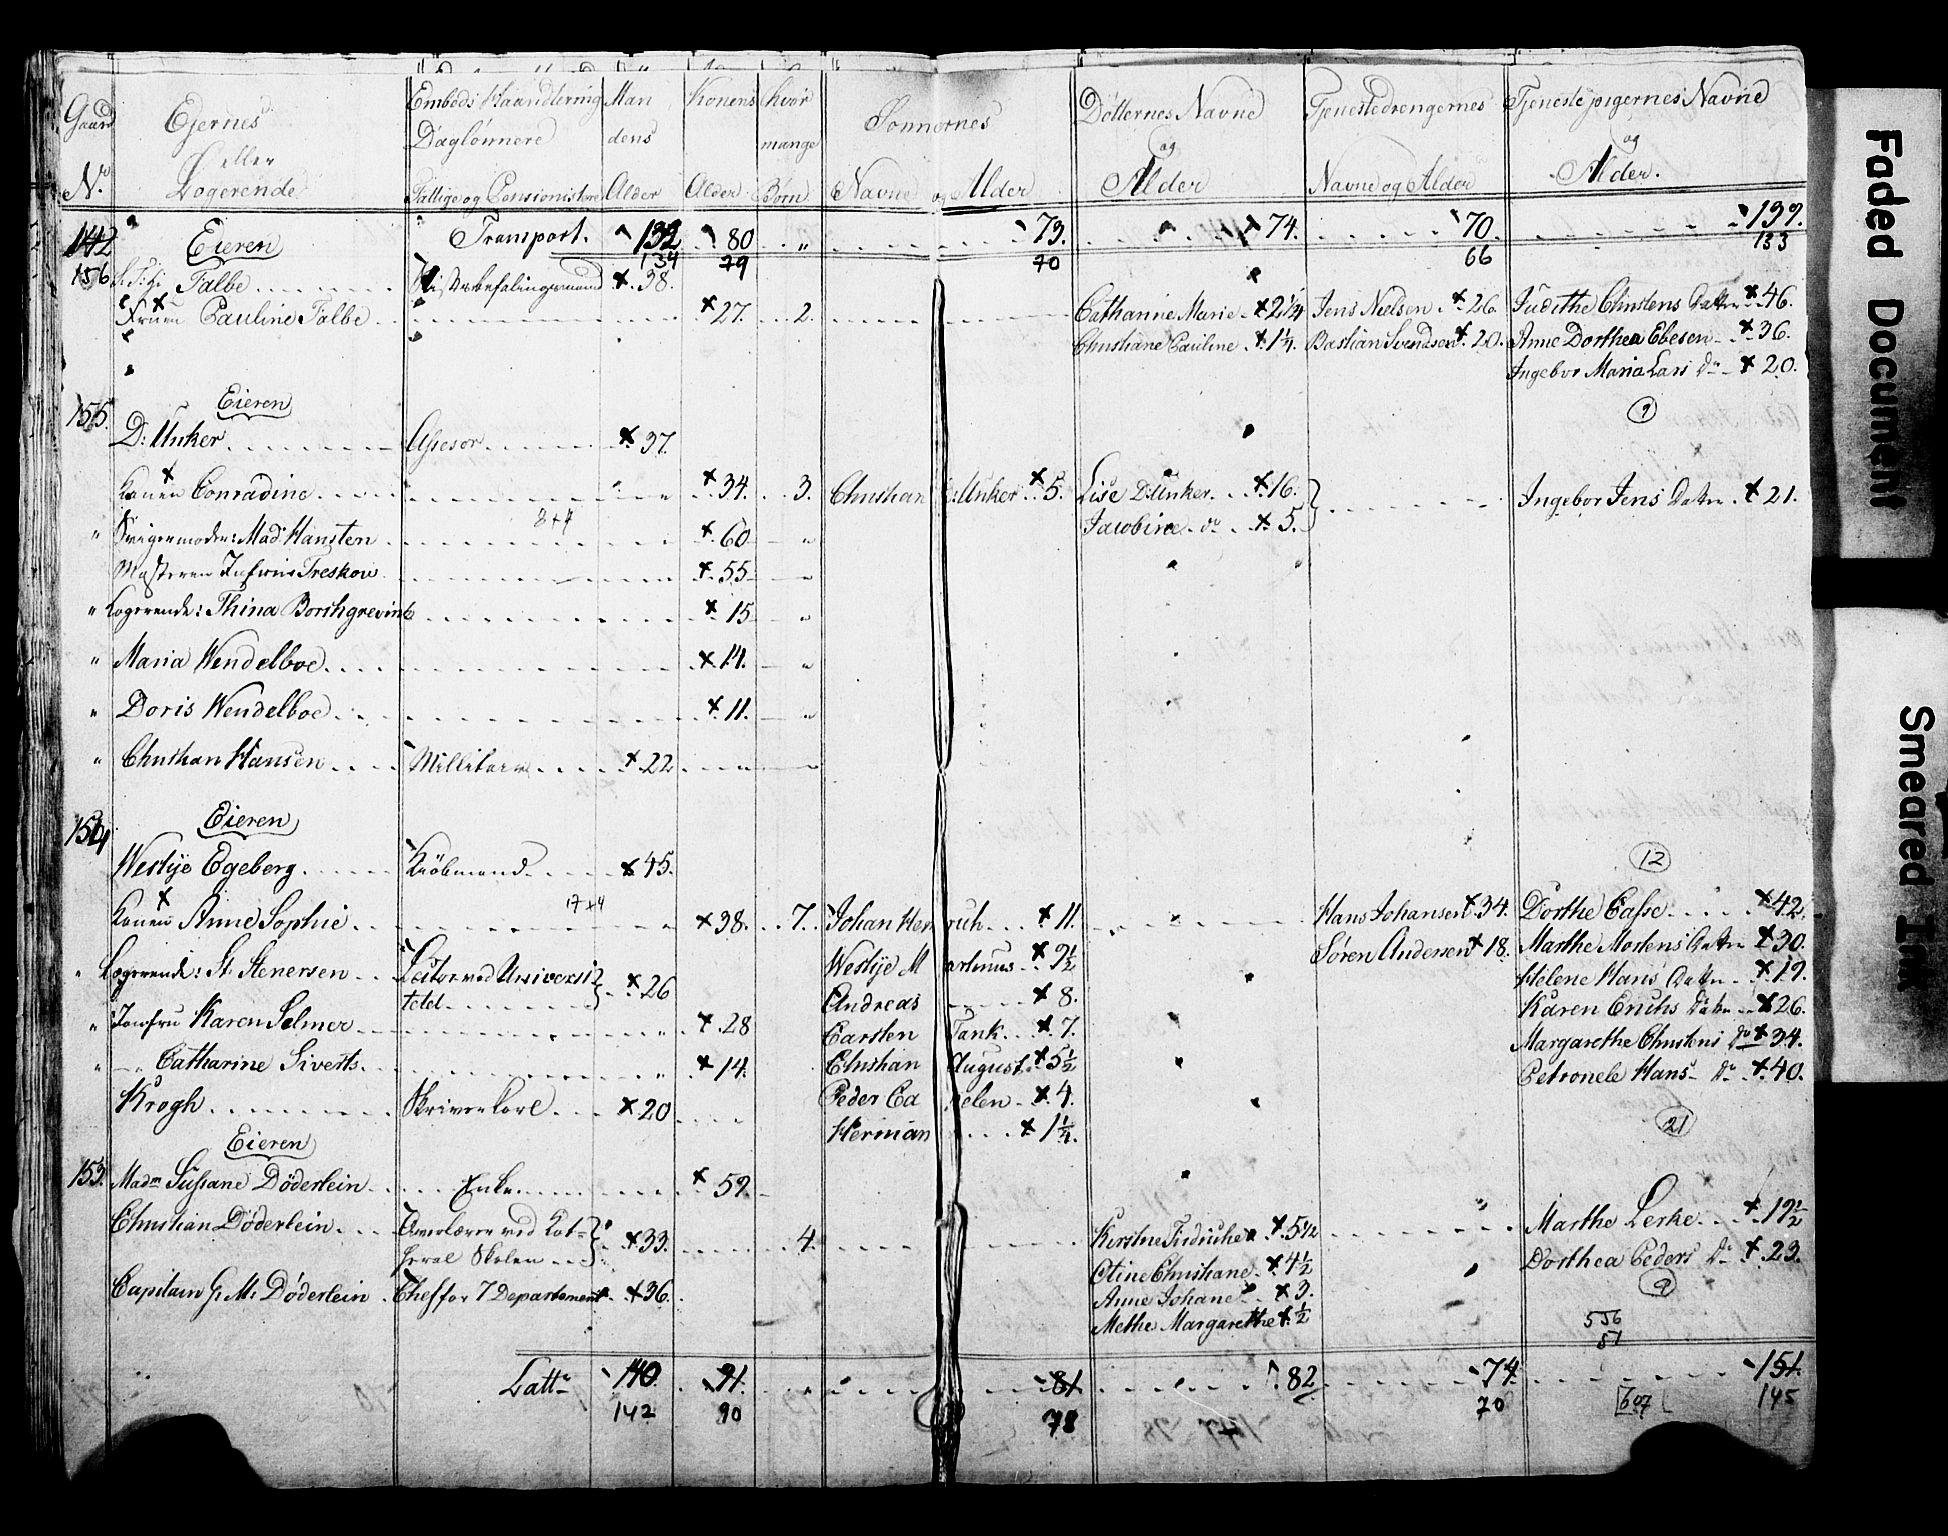 Gaard N.º | Ejernes eller Logerende | Embeds Haandtering Daglønnere Fattige og Pensionister | Mandens Alder | Konens Alder | hvor mange Børn | Sønnernes Navne og Alder | Døtternes Navne og Alder | Tjenestedrengernes Navne og Alder | Tjenestepigernes Navne og Alder.
142 Eieren Transport. 132 80 " 73. 74. 70. 139.
134 79 70 66 133
156 Falbe Stiftsbefalingsmand x 38.
Fruen Pauline Falbe x 27. 2. Catharine Marie x 2 1/4 Jens Nielsen x 26. Judithe Christens Datter x 46.
Christiane Pauline x 1 1/4. Bastian Svendsen x 20. Anne Dorthea Ebesen x 36.
Ingebor Maria Lars Dº x 20.
155. Eieren (9)
D: Unker Assesor x 37.
Konen Conradine x 34. 3. Christian D:Unker x 5. Lise D:Unker x 16. Ingebor Jens Datter x 21.
8+4 Jacobine dº x 5.
" Svigermoder: Mad Hansten x 60 "
Mosteren Jufrue Treskow x 55 "
" Logerende: Thina Borchgrevink x 15 "
" Maria Wendelboe x 14. "
" Doris Wendelboe x 11. "
" Christian Hansen Millitair x 22
154 Eieren
Westye Egeberg Kiøbmand x 45. (12)
17+4
Konen Anne Sophie x 38. 7. Johan Henrich x 11. Hans Johansen x 34. Dorthe Casse x 42.
Søren Andersen x 18. Marthe Mortens Datter x 30.
" Logerende: St. Stenersen Lector ved Universitetet x 26 Westye Martinus x 9 1/2 Helene Hans Datter x 19.
Andreas x 8. Karen Erichs Datter x 26.
" Jomfru Karen Selmer " x 28 Carsten Tank x 7. Margarethe Christens Dº x 34.
" Catharine Siverts " x 14. Christian August x 5 1/2 Petronele Hans Dº x 40.
Krogh Skriverkarl x 20 Peder Cappelen x 4.
Herman x 1 1/4. (21)
Eieren
153. Madm Sussane Døderlein Enke x 59.
Christian Døderlein Overlærer ved Kathedral Skolen x 33. 4. Kirstine Fridriche x 5 1/2 Marthe Lerke x 19 1/2
Stine Christiane x 4 1/2 Dorthea Peders Dº x 23.
Capitain G. M. Døderlein Chef for 7 Departement x 36. Anne Johane x 3. (9)
Methe Margarethe x 1/2 556
51
Latt 140. 91. 81 82 74. 151.
142 90 78 70 607 145
Faded Document
Smeared Ink